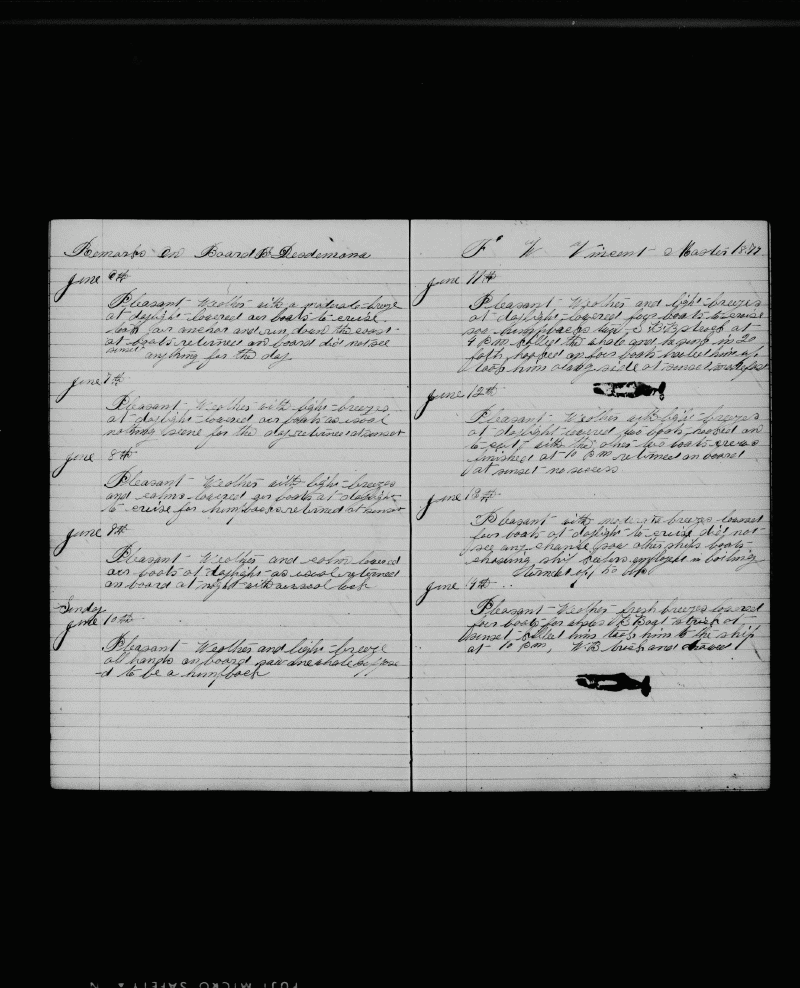 Remarks on Board B Desdemona
June 6th
Pleasant Weather with a moderate breze
at daylight lowered our boats to cruise
took our anchor and run down the coast
at boats returned on board did not see
sunset
anything for the day
June 7th
Pleasant Weather with light breezes
at daylight lowered our boats as usual
nothing seene for the day returned at sunset
June 8th
Pleasant Weather with light breezes
and calms lowered our boats at daylight
to cruise for humpbacks returned at sunset
June 9th
Pleasant Weather and calm lowered
our boats at daylight as usual returned
on board at night with
Sunday
June 10th
Pleasant Weather and light breeze
all hands on board saw one whale suppose
-d to be a humpback
F W Vincent Master 1877
June 11th
Pleasant Weather and light breezes
at daylight lowered four boats to cruise
see humpbacks struck at
4 PM killed the whale and he sunk in 20
foth hooked on four boats hauled him up
took him along side at sunset
June 12th
Pleasant Weather with light breezes
at daylight lowered two boats hooked on
to cut with the other two boats
finished at 10 PM returned on board
at sunset no success
June 13th
Pleasant with moderate breeze lowered
four boats at daylight to cruise did not
see any chance saw other ships boats
chasing ship employed in boiling
June 14th
Pleasant Weather fresh breezes lowered
four boats for struck at
sunset killed him took him to the ship
at 10 PM,
FUJI MICRO SAFETY